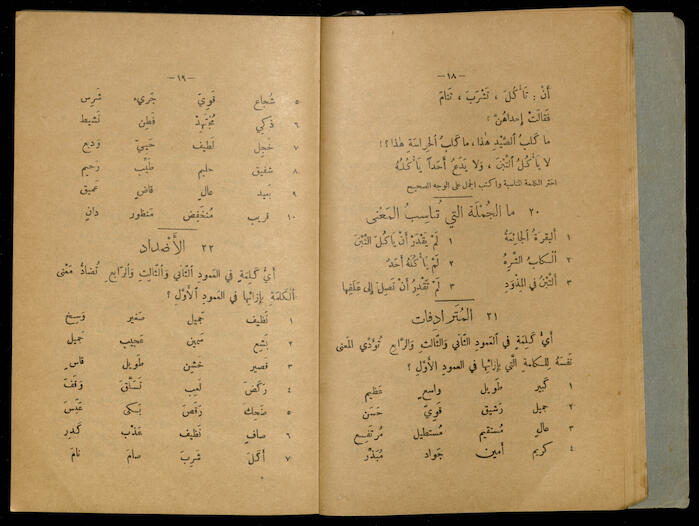 — ١٨ —
أَنْ : تَأْكُلَ ، تَشْرَبَ ، تَنَامَ
فَقَالَتْ إِحداهُنَّ :
ما كلبُ الصَّيْدِ هٰذا ، ما كلبُ الحِراسةِ هٰذا ؟!
لا يَأْكُلُ التِّبْنَ ، ولا يَدَعُ أَحَداً يَأْكُلُهُ
اختر الكلمة المناسبة واكتب الجمل على الوجه الصحيح
٢٠ ما الجُمْلَة التي تُناسِبُ المَعْنى
١ البقرةُ الجائِعَةُ ١ لم يَقْدِرْ أَنْ يَأْكلَ التِّبْنَ
٢ الكلبُ الشَّرِهُ ٢ لَمْ يَأْكُلْهُ أَحَدٌ
٣ التِّبْنُ في المِذْوَدِ ٣ لم تَقْدِرْ أَنْ تَصِلَ إلى عَلَفِها
٢١ المُتَرادِفات
أَيُّ كَلِمَةٍ في العَمودِ الثَّاني والثَّالثِ والرَّابعِ تُؤَدِّي المعنى
نَفْسَهُ للكلمةِ الَّتي بإزائها في العمودِ الأَوَّلِ ؟
١ كَبير طَويل واسِع عَظيم
٢ جميل رَشيق قَويّ حَسَن
٣ عالٍ مُستَقيم مُستَطيل مُرتَفِع
٤ كريم أَمين جَواد مُبَذِّر
— ١٩ —
٥ شُجاع قَويّ جَريء شَرِس
٦ ذَكيّ مُجْتَهِدْ فَطِن نَشيط
٧ خَجِل لَطيف حَييّ وَديع
٨ شَفيق حَليم طَيِّب رَحيم
٩ بَعيد عالٍ قاصٍ عَميق
١٠ قَريب مُنْخَفِض مَنظور دانٍ
٢٢ الأَضْداد
أَيُّ كَلِمَةٍ في العمودِ الثَّاني والثَّالثِ والرَّابعِ تُضادُّ مَعْنى
الكلمَةِ بإزائها في العمودِ الأَوَّلِ ؟
١ نَظيف جَميل صَغير وَسِخ
٢ بَشِع سَمين عَجيب جَميل
٣ قَصير خَشِن طَويل قاسٍ
٤ رَكَضَ لَعِبَ تَسَلَّقَ وَقَفَ
٥ ضَحِكَ رَقَصَ بَكى عَبَسَ
٦ صافٍ نَظيف عَذْب كَدِر
٧ أَكَلَ شَرِبَ صامَ نامَ